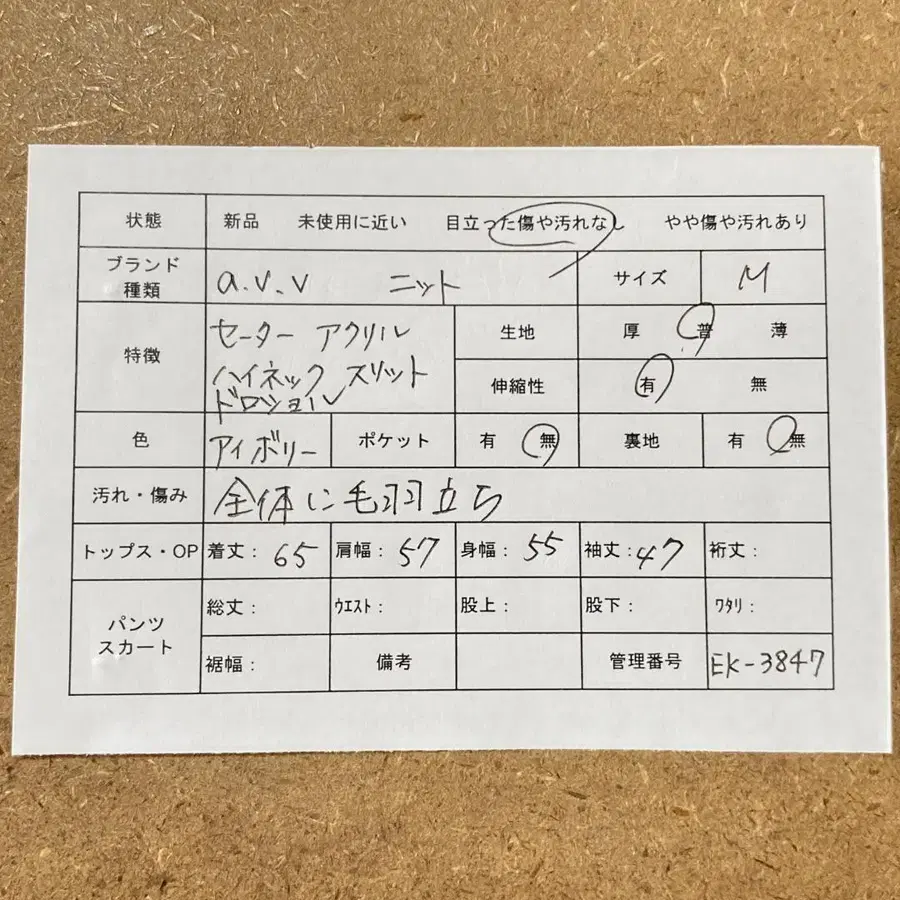 状態 新品 未使用に近い 目立った傷や汚れなし やや傷や汚れあり
ブランド
種類 a.v.v ニット サイズ M
特徴 セーター アクリル 生地 厚 普 薄
ハイネック スリット 伸縮性 有 無
ドロショル
色 アイボリー ポケット 有 無 裏地 有 無
汚れ・傷み 全体に毛羽立ち
トップス・OP 着丈: 65 肩幅: 57 身幅: 55 袖丈: 47 裄丈:
パンツ
スカート 総丈: ウエスト: 股上: 股下: ワタリ:
裾幅: 備考 管理番号 EK-3847